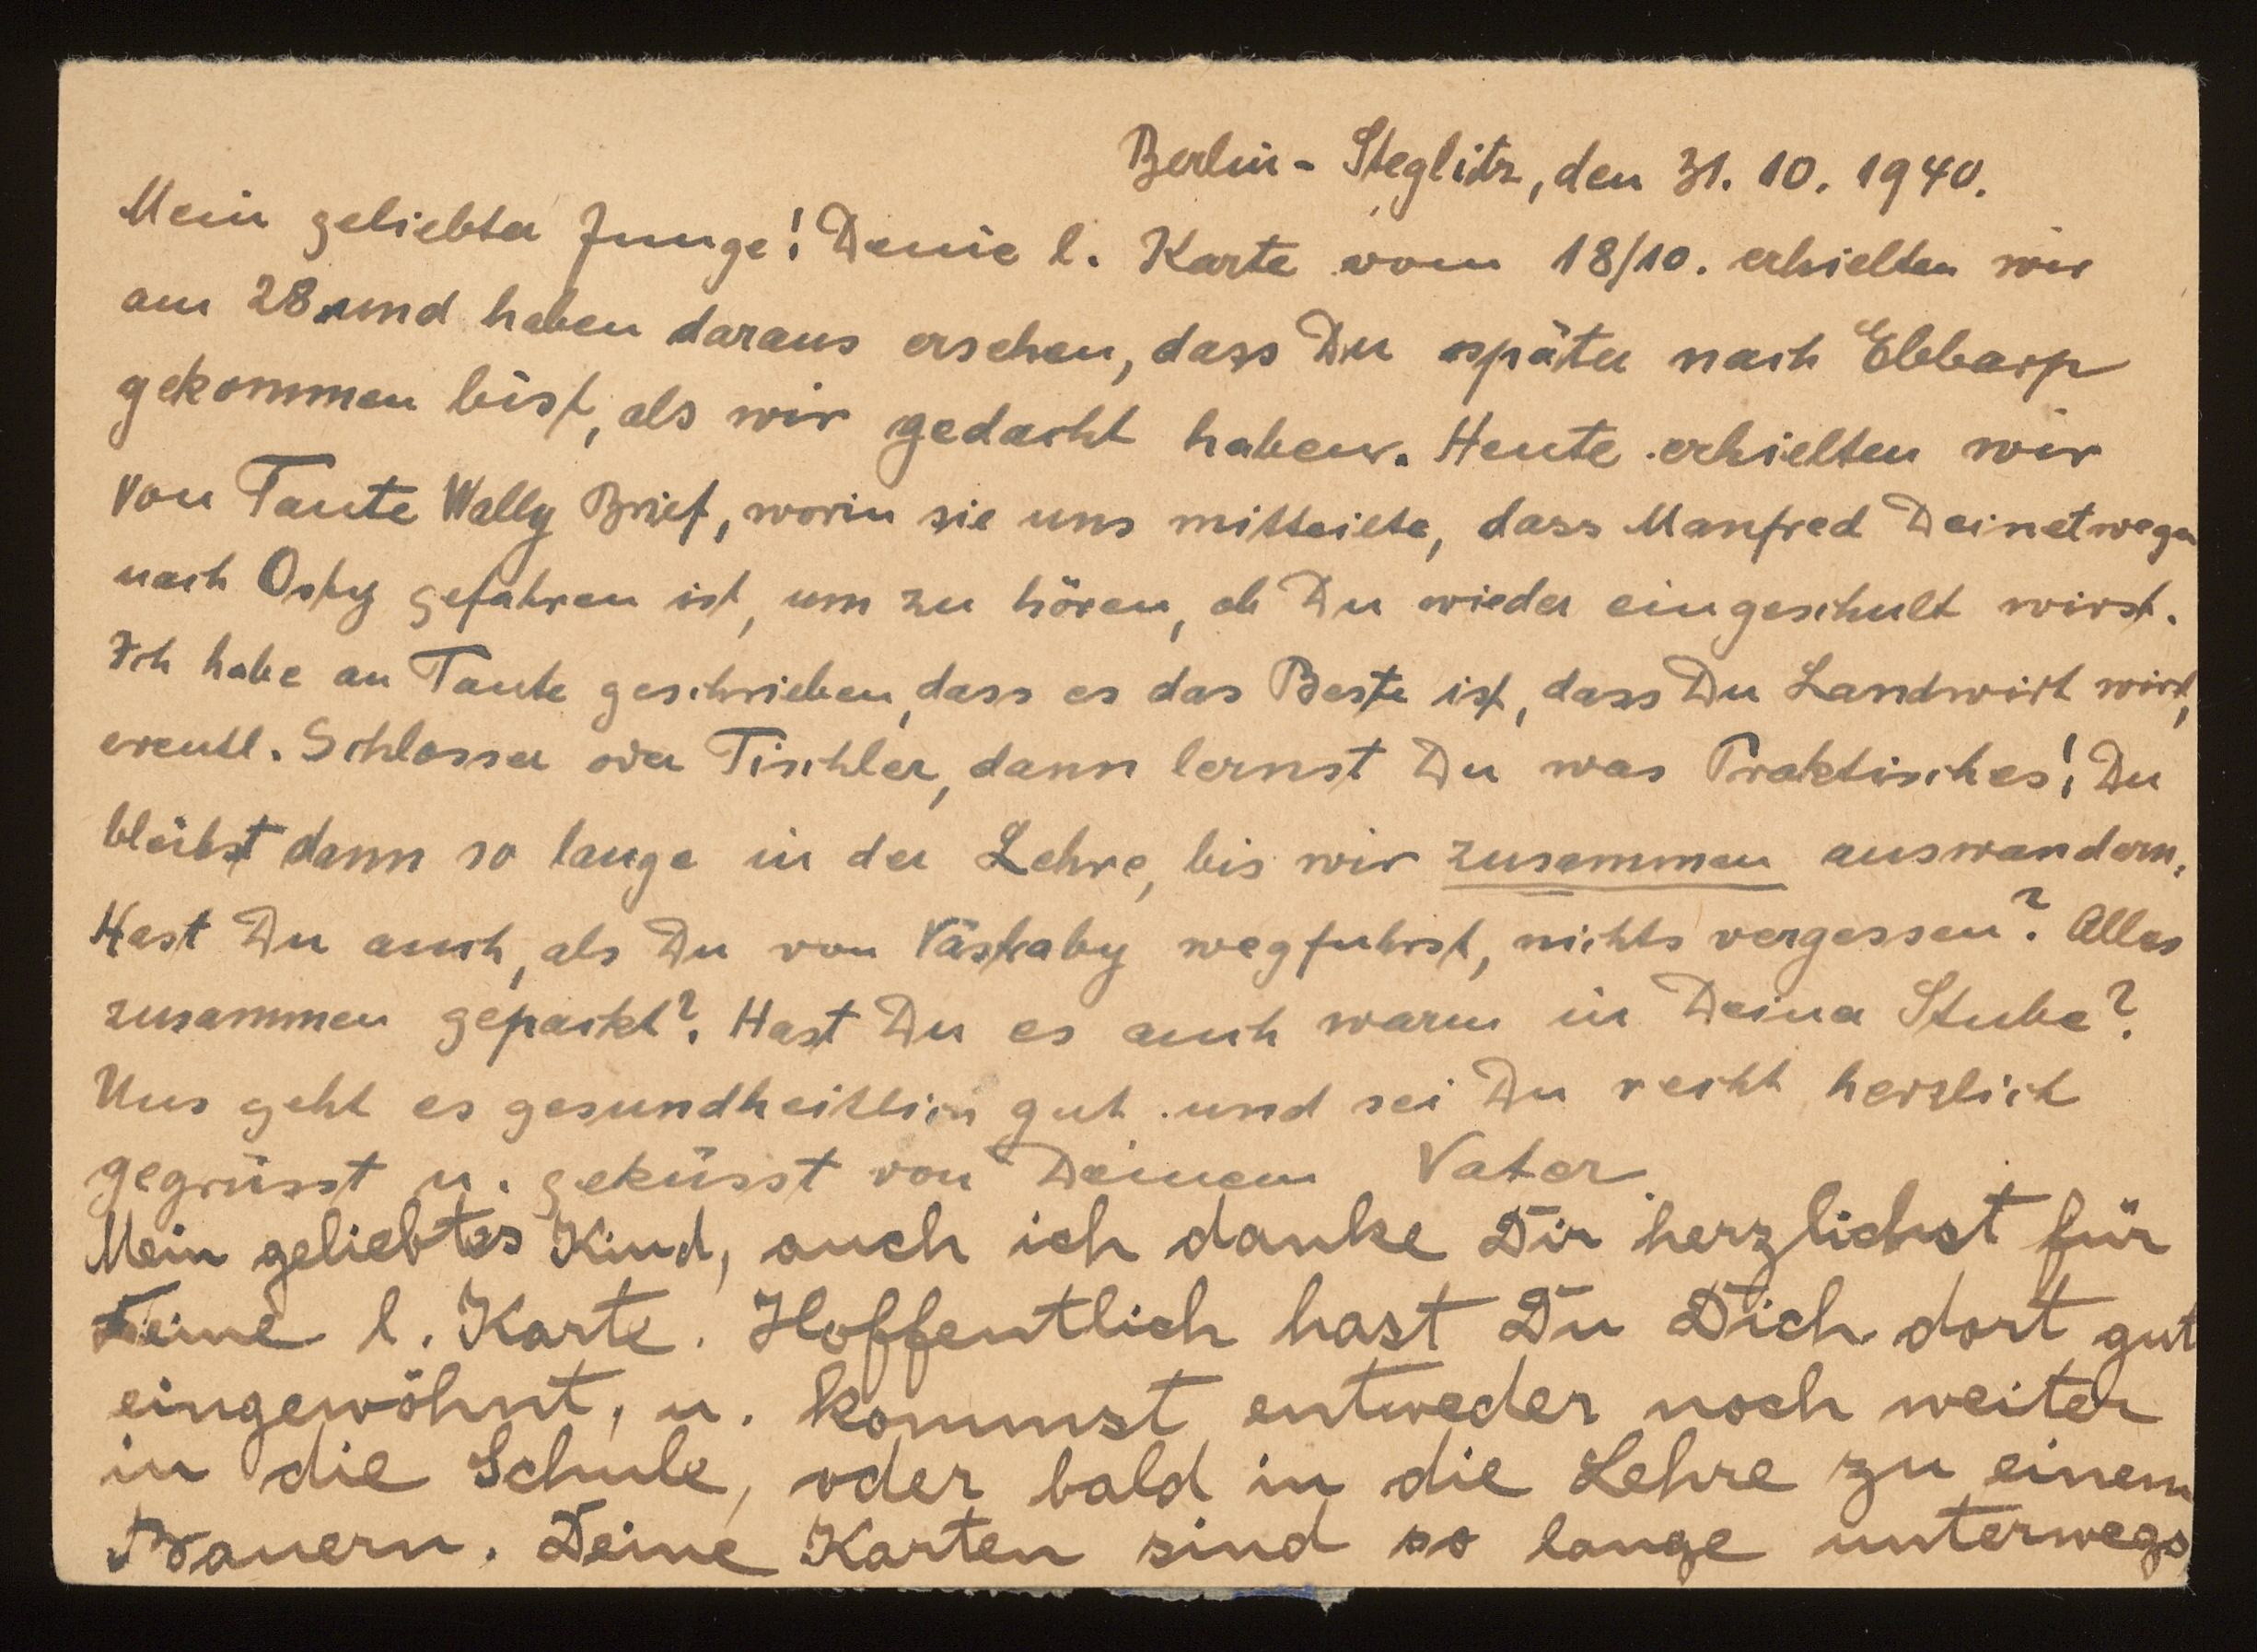 Berlin - Steglitz, den 31. 10. 1940.
Mein geliebter Junge! Deine l. Karte vom 18/10. erhielten wir
am 28. und haben daraus ersehen, dass Du später nach Ebbarp
gekommen bist, als wir gedacht haben. Heute erhielten wir
von Tante Wally Brief, worin sie uns mitteilte, dass Manfred Deinetwegen
nach Osby gefahren ist, um zu hören, ob Du wieder eingeschult wirst.
Ich habe an Tante geschrieben, dass es das Beste ist, dass Du Landwirt wirst,
eventl. Schlosser oder Tischler, dann lernst Du was Praktisches! Du
bleibst dann so lange in der Lehre, bis wir zusammen auswandern.
Hast Du auch, als Du von Västraby wegfuhrst, nichts vergessen? Alles
zusammen gepackt? Hast Du es auch warm in Deiner Stube?
Uns geht es gesundheitlich gut und sei Du recht herzlich
gegrüsst u. geküsst von Deinem Vater.
Mein geliebtes Kind, auch ich danke Dir herzlichst für
Deine l. Karte. Hoffentlich hast Du Dich dort gut
eingewöhnt, u. kommst entweder noch weiter
in die Schule, oder bald in die Lehre zu einem
Bauern. Deine Karten sind so lange unterwegs